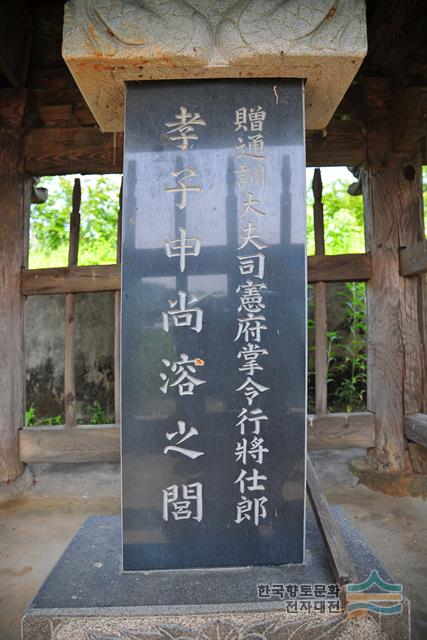 贈通訓大夫司憲府掌令行將仕郎
孝子申尚溶之閭
한국향토문화
전자대전